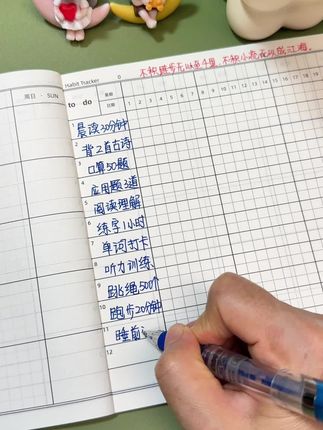 不积跬步无以至千里，不积小流无以成江海。
周日 · SUN
Habit Tracker
to · do
星期
日期
1 2 3 4 5 6 7 8 9 10 11 12 13 14
1 晨读20分钟
2 背2首古诗
3 口算50题
4 应用题3道
5 阅读理解
6 练字1小时
7 单词打卡
8 听力训练
9 跳绳500个
10 跑步20分钟
11 睡前
12